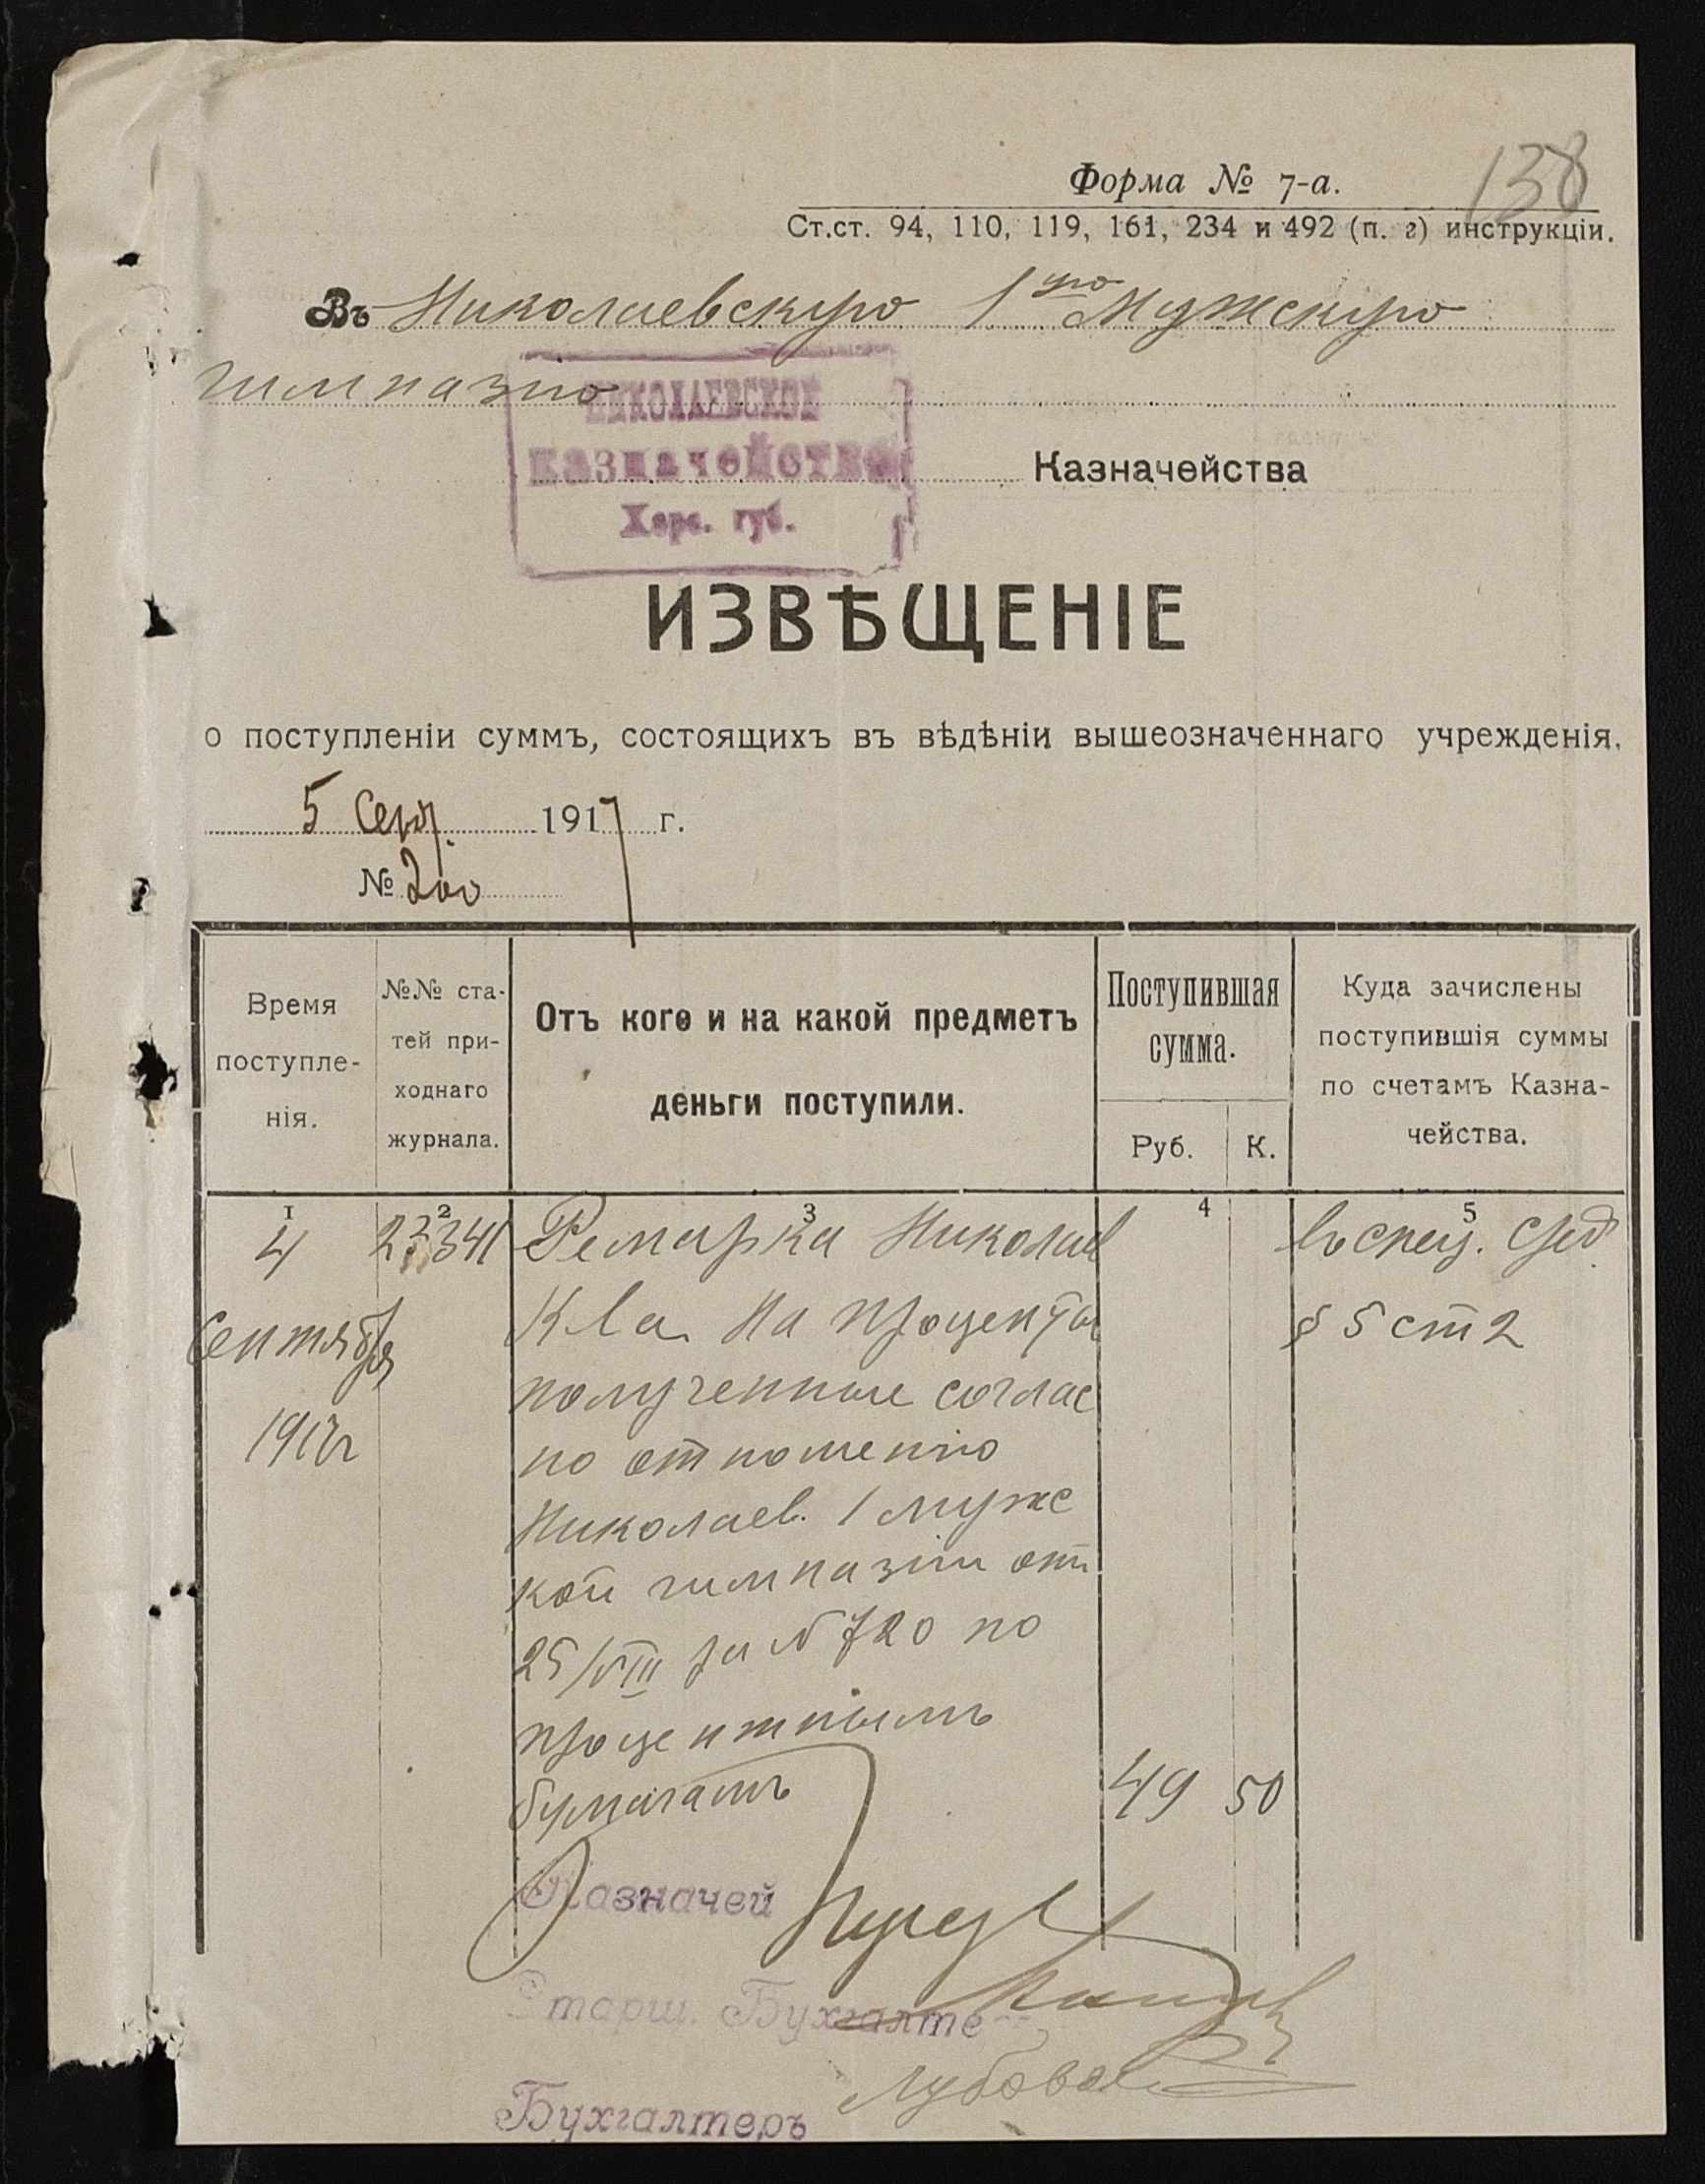 138
Форма № 7-а.
Ст.ст. 94, 110, 119, 161, 234 и 492 (п. г) инструкціи.
Въ Николаевскую 1ую Мужскую
гимназію
НИКОЛАЕВСКОЕ
КАЗНАЧЕЙСТВО
Херс. губ.
Казначейства
ИЗВѢЩЕНІЕ
о поступленіи суммъ, состоящихъ въ вѣдѣніи вышеозначеннаго учрежденія.
5 Сент. 1917 г.
№ 200
Время поступле-нія.
№№ ста-тей при-ходнаго журнала.
Отъ кого и на какой предметъ деньги поступили.
Поступившая сумма.
Руб. К.
Куда зачислены поступившія суммы по счетамъ Казна-чейства.
1 2 3 4 5
4 Николаев въ спец. сред
Сентября К-ва на проценты § 5 ст 2
полученные соглас
1917г но отношенію
Николаев. 1 мужс
кой гимназіи отъ
25/VIII за № 720 по
процентнымъ
бумагамъ 49 50
Казначей
Старш. Бухгалте
Бухгалтеръ